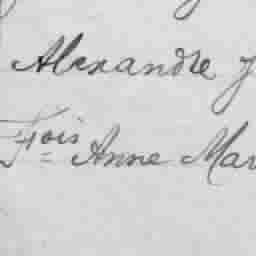 Alexandre J
Fçois Anne Mar